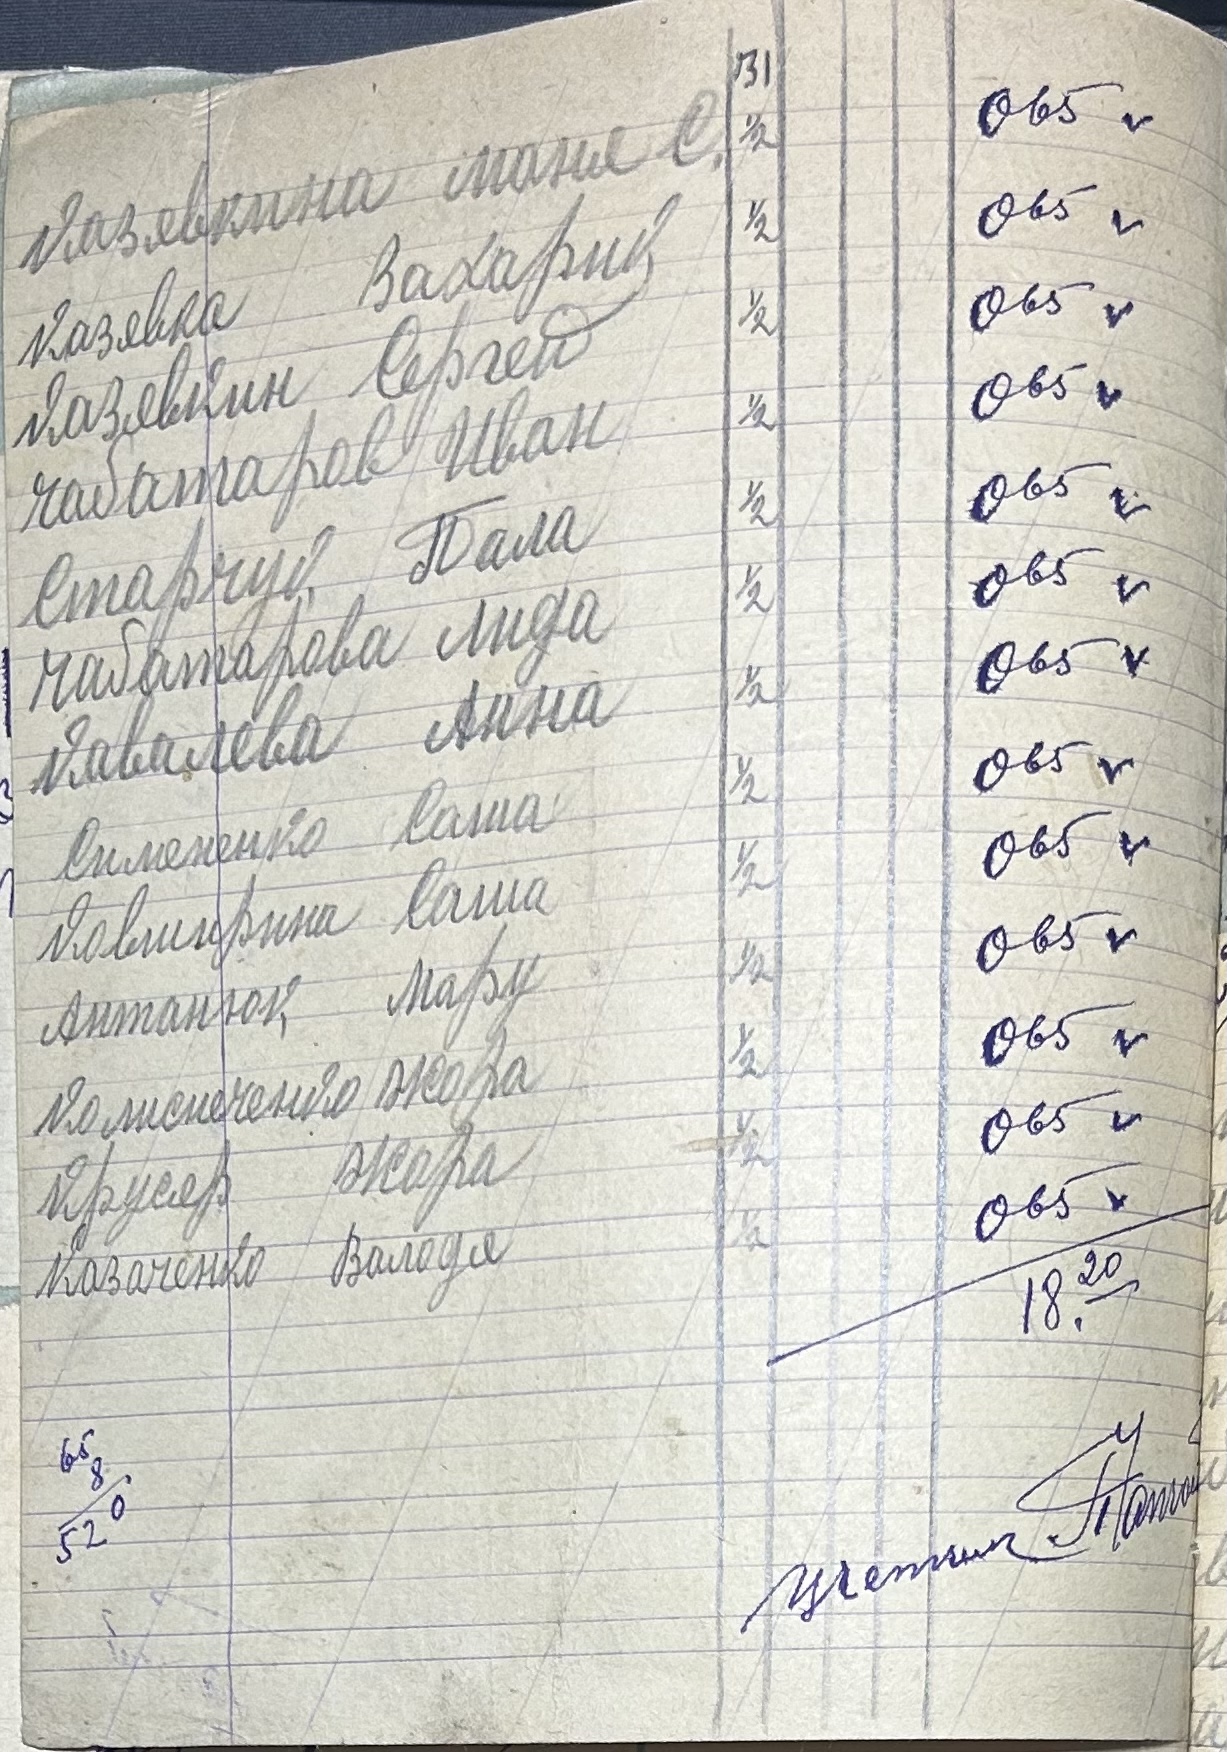 31
Казявкина маня С. ½ 0 65 v
Казявка Захарий ½ 0 65 v
Казявкин Сергей ½ 0 65 v
чабатаров Иван ½ 0 65 v
Старчий Пала ½ 0 65 v
чабатарова лида ½ 0 65 v
Кавалева Анна ½ 0 65 v
Симененко Саша ½ 0 65 v
Саша ½ 0 65 v
Антанюк Мару ½ 0 65 v
жора ½ 0 65 v
Крусер жора ½ 0 65 v
Казаченко Валодя ½ 0 65 v
18.20
65
8
520
учетчик